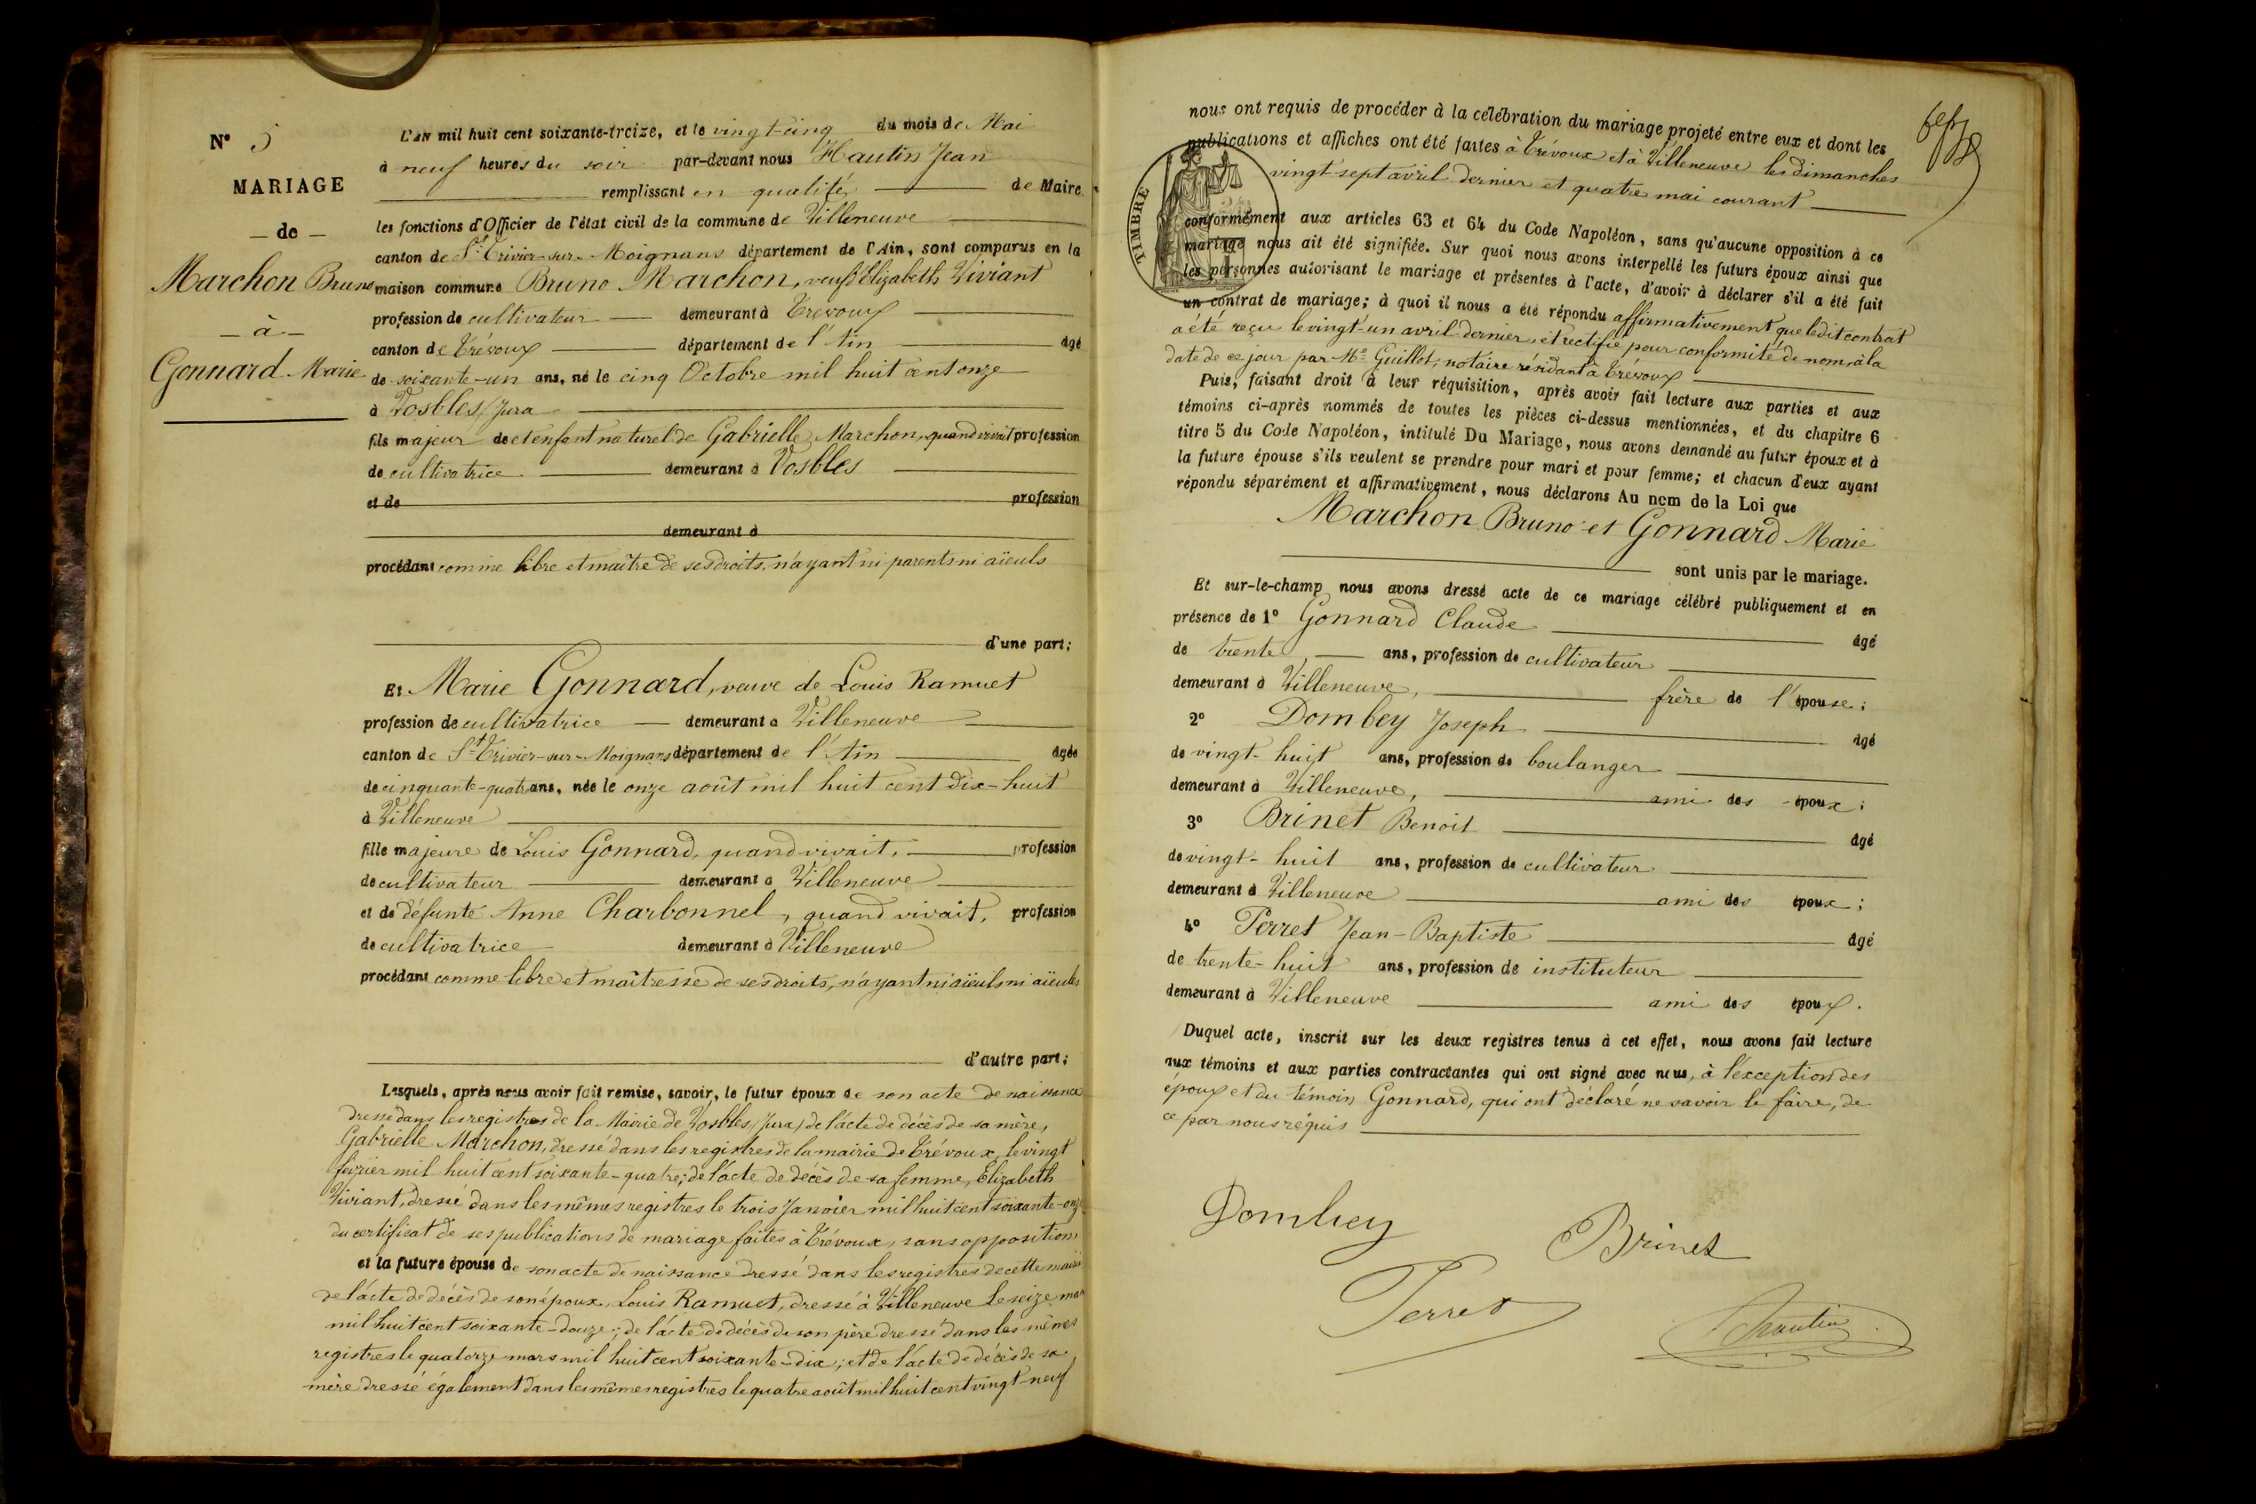 N° 5
MARIAGE
— de —
Marchon Bruno
— à —
Gonnard Marie
L'AN mil huit cent soixante-treize, et le vingt-cinq du mois de Mai
à neuf heures du soir par-devant nous Hautin Jean
remplissant en qualité de Maire
les fonctions d'Officier de l'état civil de la commune de Villeneuve
canton de St Trivier-sur-Moignans département de l'Ain, sont comparus en la
maison commune Bruno Marchon, veuf d'Elizabeth Viviant
profession de cultivateur demeurant à Trévoux
canton de Trévoux département de l'Ain âgé
de soixante-un ans, né le cinq Octobre mil huit cent onze
à Vosbles, Jura
fils majeur de et enfant naturel de Gabrielle Marchon, quand vivait profession
de cultivatrice demeurant à Vosbles
et de profession
demeurant à
procédant comme libre et maître de ses droits, n'ayant ni parents ni aïeuls
d'une part;
Et Marie Gonnard, veuve de Louis Ramuet
profession de cultivatrice demeurant à Villeneuve
canton de St Trivier-sur-Moignans département de l'Ain âgée
de cinquante-quatre ans, née le onze août mil huit cent dix-huit
à Villeneuve
fille majeure de Louis Gonnard, quand vivait, profession
de cultivateur demeurant à Villeneuve
et de défunte Anne Charbonnel, quand vivait, profession
de cultivatrice demeurant à Villeneuve
procédant comme libre et maîtresse de ses droits, n'ayant ni aïeuls ni aïeules
d'autre part;
Lesquels, après nous avoir fait remise, savoir, le futur époux de son acte de naissance
dressé dans les registres de la Mairie de Vosbles, Jura, de l'acte de décès de sa mère,
Gabrielle Marchon, dressé dans les registres de la mairie de Trévoux, le vingt
février mil huit cent soixante-quatre; de l'acte de décès de sa femme, Elizabeth
Viviant, dressé dans les mêmes registres le trois Janvier mil huit cent soixante-onze
du certificat de ses publications de mariage faites à Trévoux, sans opposition
et la future épouse de son acte de naissance dressé dans les registres de cette mairie
de l'acte de décès de son époux, Louis Ramuet, dressé à Villeneuve le seize mars
mil huit cent soixante-douze; de l'acte de décès de son père dressé dans les mêmes
registres le quatorze mars mil huit cent soixante-dix; et de l'acte de décès de sa
mère dressé également dans les mêmes registres le quatre août mil huit cent vingt-neuf
nous ont requis de procéder à la célébration du mariage projeté entre eux et dont les
publications et affiches ont été faites à Trévoux et à Villeneuve les dimanches
vingt-sept avril dernier et quatre mai courant
TIMBRE
conformément aux articles 63 et 64 du Code Napoléon, sans qu'aucune opposition à ce
mariage nous ait été signifiée. Sur quoi nous avons interpellé les futurs époux ainsi que
les personnes autorisant le mariage et présentes à l'acte, d'avoir à déclarer s'il a été fait
un contrat de mariage; à quoi il nous a été répondu affirmativement que ledit contrat
a été reçu le vingt-un avril dernier, et rectifié pour conformité de nom, à la
date de ce jour par Me Guillot, notaire résidant à Trévoux
Puis, faisant droit à leur réquisition, après avoir fait lecture aux parties et aux
témoins ci-après nommés de toutes les pièces ci-dessus mentionnées, et du chapitre 6
titre 5 du Code Napoléon, intitulé Du Mariage, nous avons demandé au futur époux et à
la future épouse s'ils veulent se prendre pour mari et pour femme; et chacun d'eux ayant
répondu séparément et affirmativement, nous déclarons Au nom de la Loi que
Marchon Bruno et Gonnard Marie
sont unis par le mariage.
Et sur-le-champ nous avons dressé acte de ce mariage célébré publiquement et en
présence de 1° Gonnard Claude âgé
de trente ans, profession de cultivateur
demeurant à Villeneuve, frère de l'épouse;
2° Dombey Joseph âgé
de vingt-huit ans, profession de boulanger
demeurant à Villeneuve, ami des époux;
3° Brinet Benoit âgé
de vingt-huit ans, profession de cultivateur
demeurant à Villeneuve ami des époux;
4° Perret Jean-Baptiste âgé
de trente-huit ans, profession de instituteur
demeurant à Villeneuve ami des époux.
Duquel acte, inscrit sur les deux registres tenus à cet effet, nous avons fait lecture
aux témoins et aux parties contractantes qui ont signé avec nous, à l'exception des
époux et du témoin Gonnard, qui ont déclaré ne savoir le faire, de
ce par nous réquis
Dombey
Brinet
Perret
Hautin